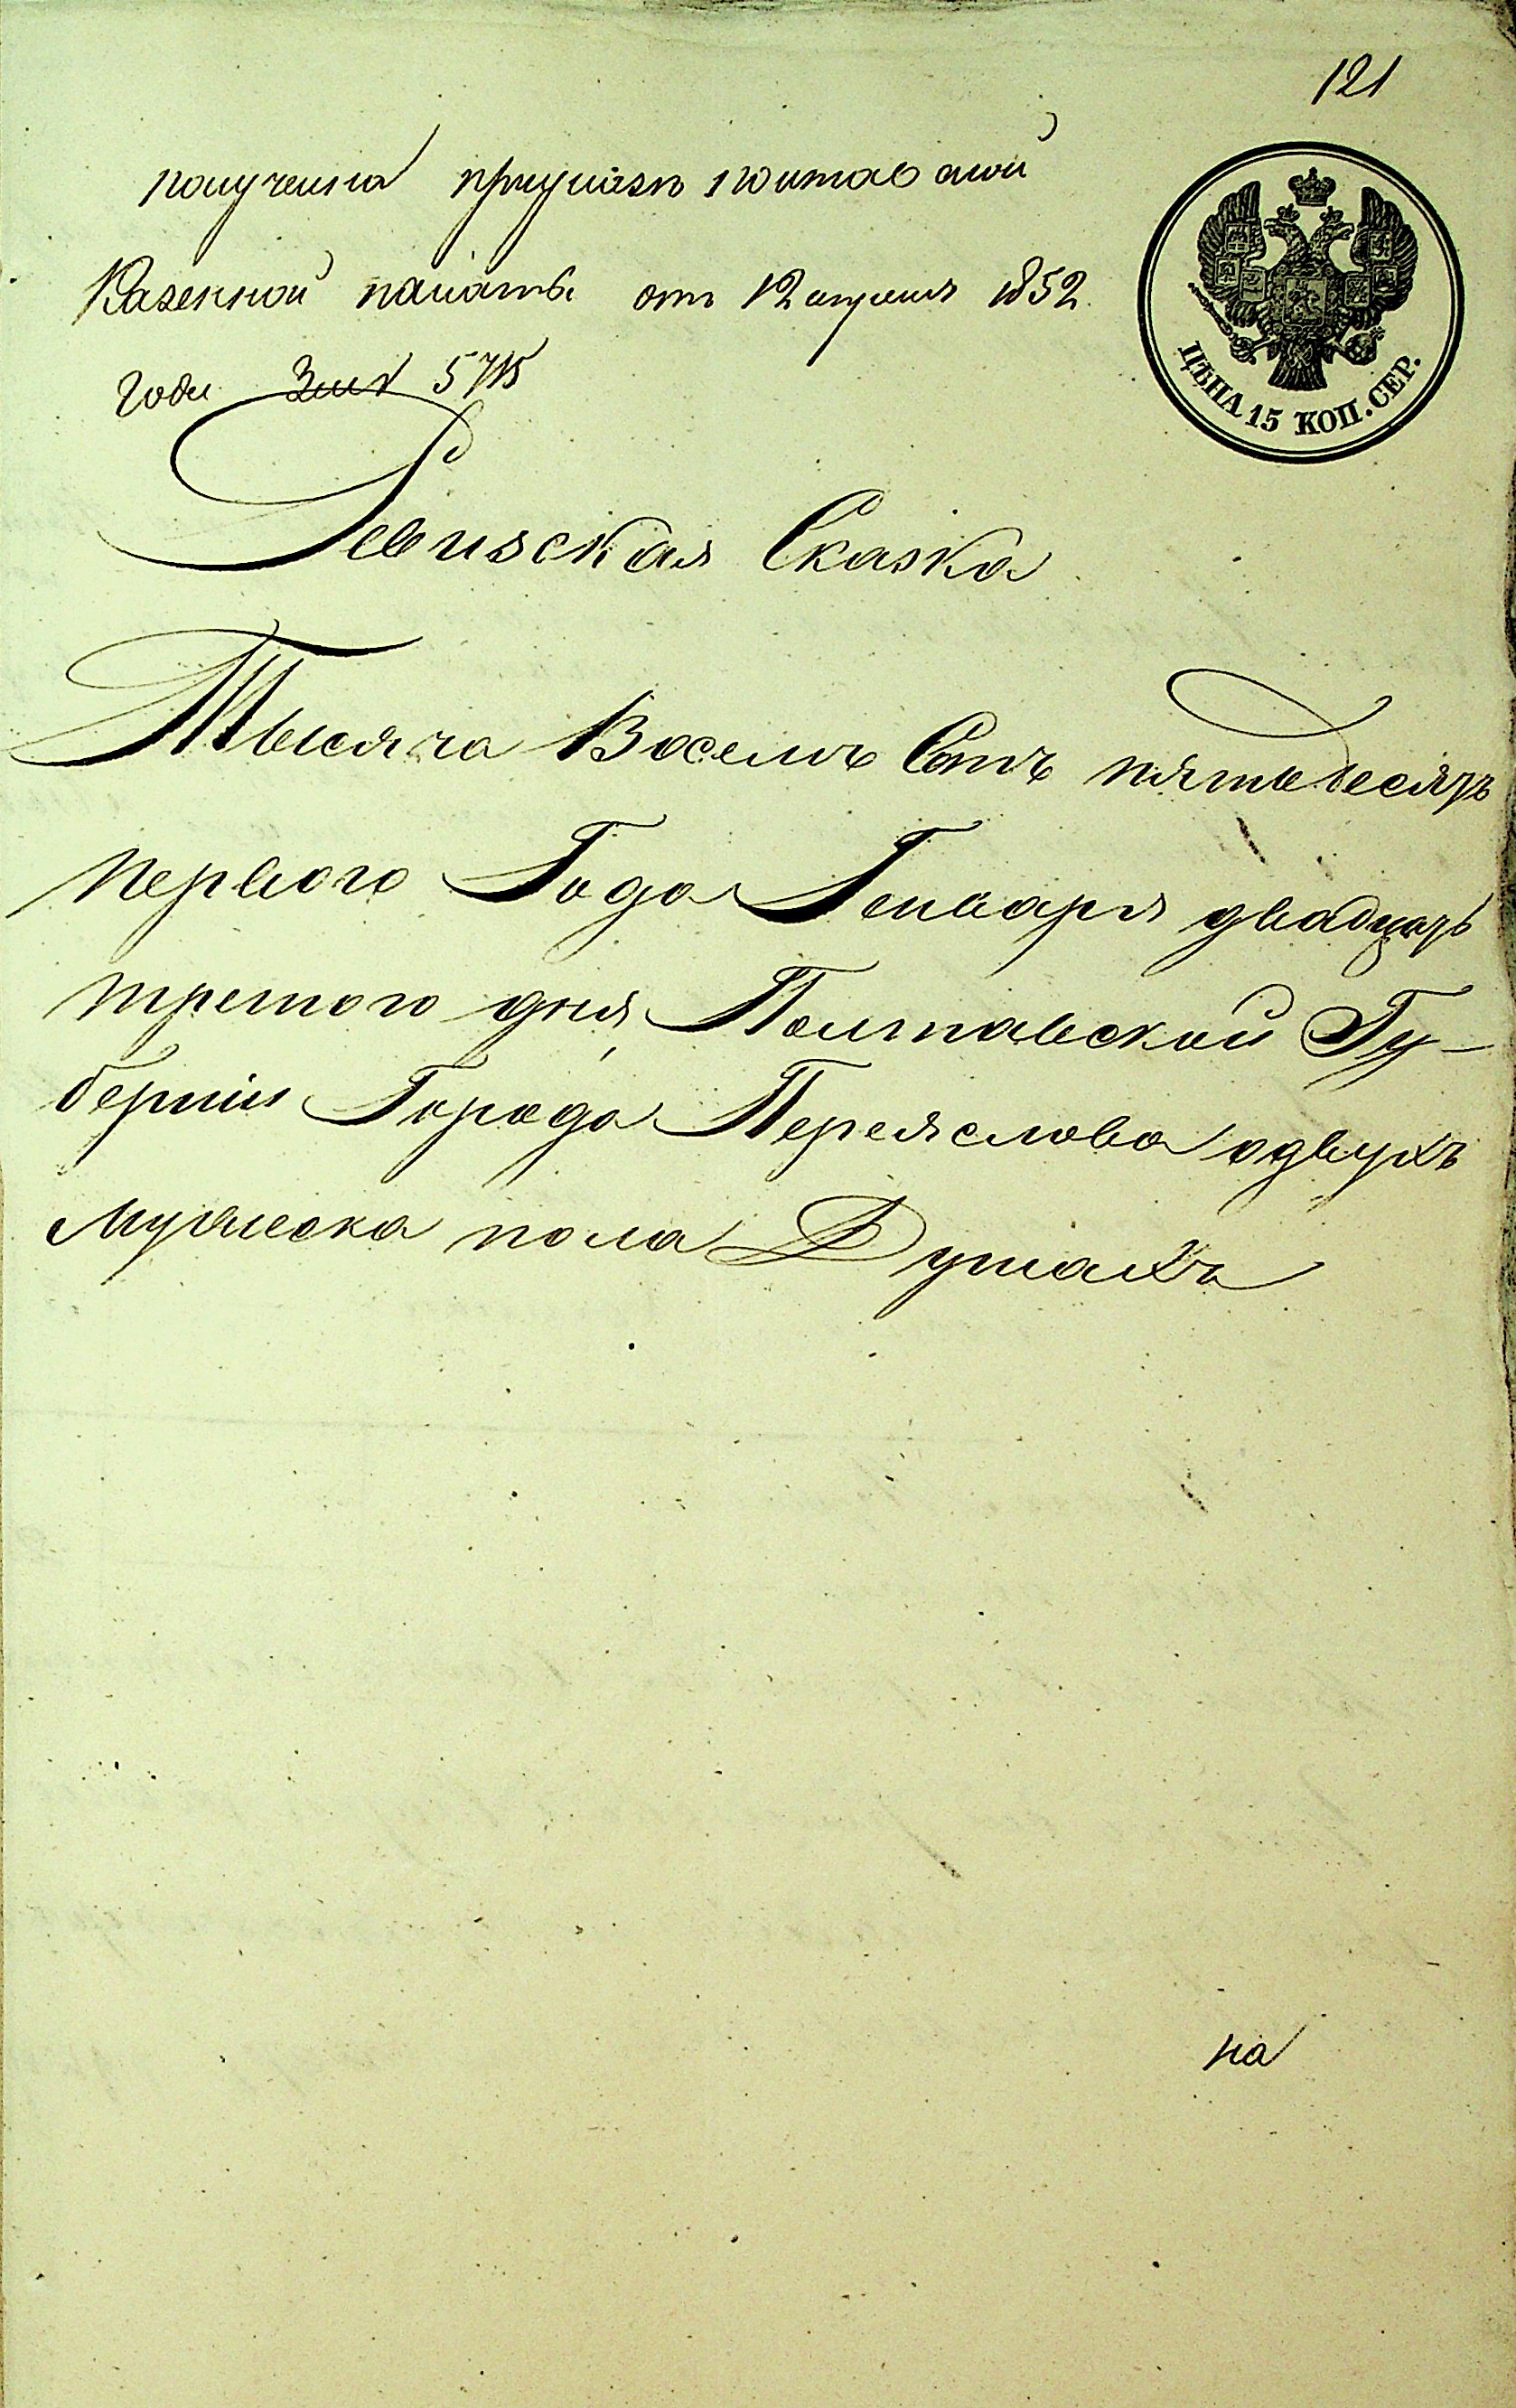 121
получена приуказе Полтавской
Казенной палаты от 12 апреля 1852
года 5715
ЦѢНА 15 КОП. СЕР.
Ревизская Сказка
Тысяча Восемь Сотъ пятьдесятъ
первого Года Генваря двадцать
третого дня Полтавской Гу-
берніи Города Переяслова одвухъ
мужеска пола Душахъ
на